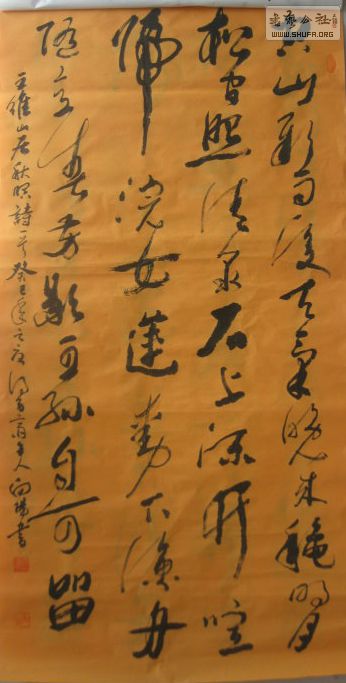 书艺公社
WWW.SHUFA.ORG
空山新雨後天氣晚來穐明月
松間照清泉石上流竹喧
歸浣女蓮動下漁舟
隨意春芳歇王孫自可留
王維山居秋暝詩一首癸巳年之夏齋主人書